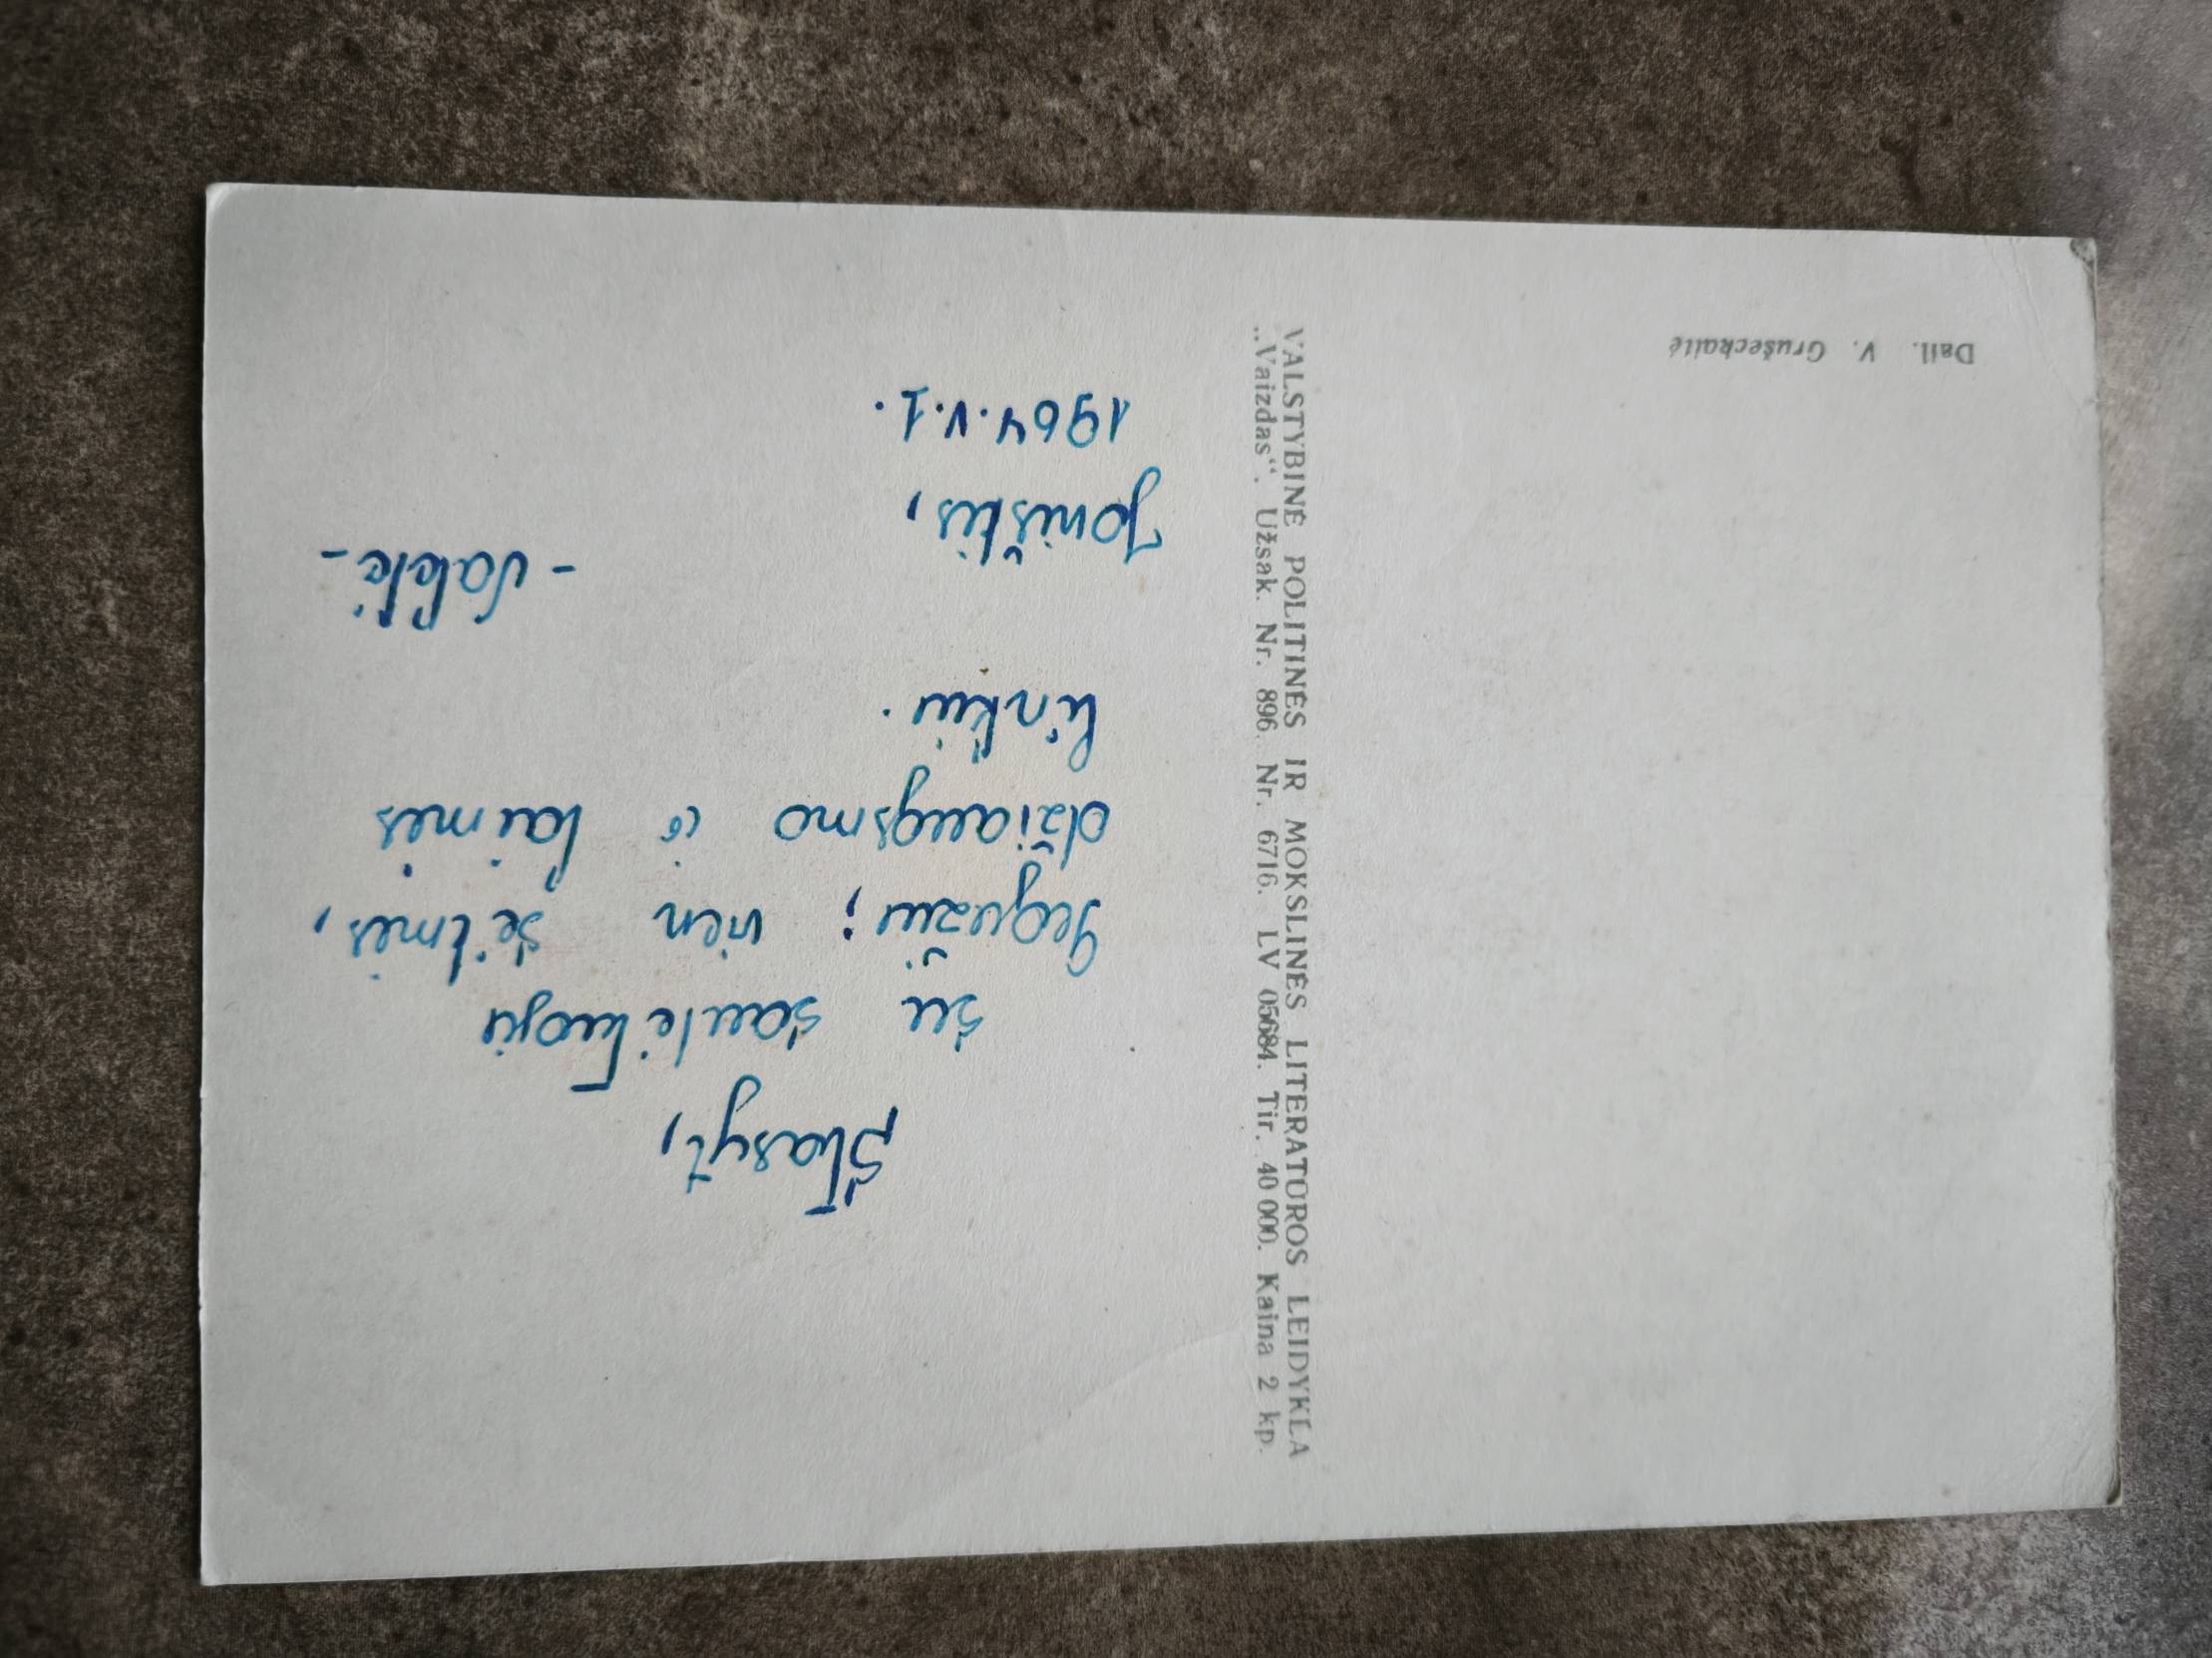 Stasyt,
su saulėtuoju
Gegužiu; vien sėkmės,
džiaugsmo ir laimės
linkiu.
- Valė -
Joniškis,
1964.V.1.
VALSTYBINĖ POLITINĖS IR MOKSLINĖS LITERATŪROS LEIDYKLA
„Vaizdas“. Užsak. Nr. 896. Nr. 6716. LV 05684. Tir. 40 000. Kaina 2 kp.
Dail. V. Grušeckaitė